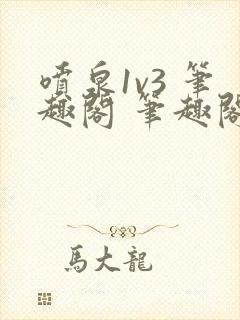 噴泉1v3 筆
趣閣 筆趣閣
馬大龍